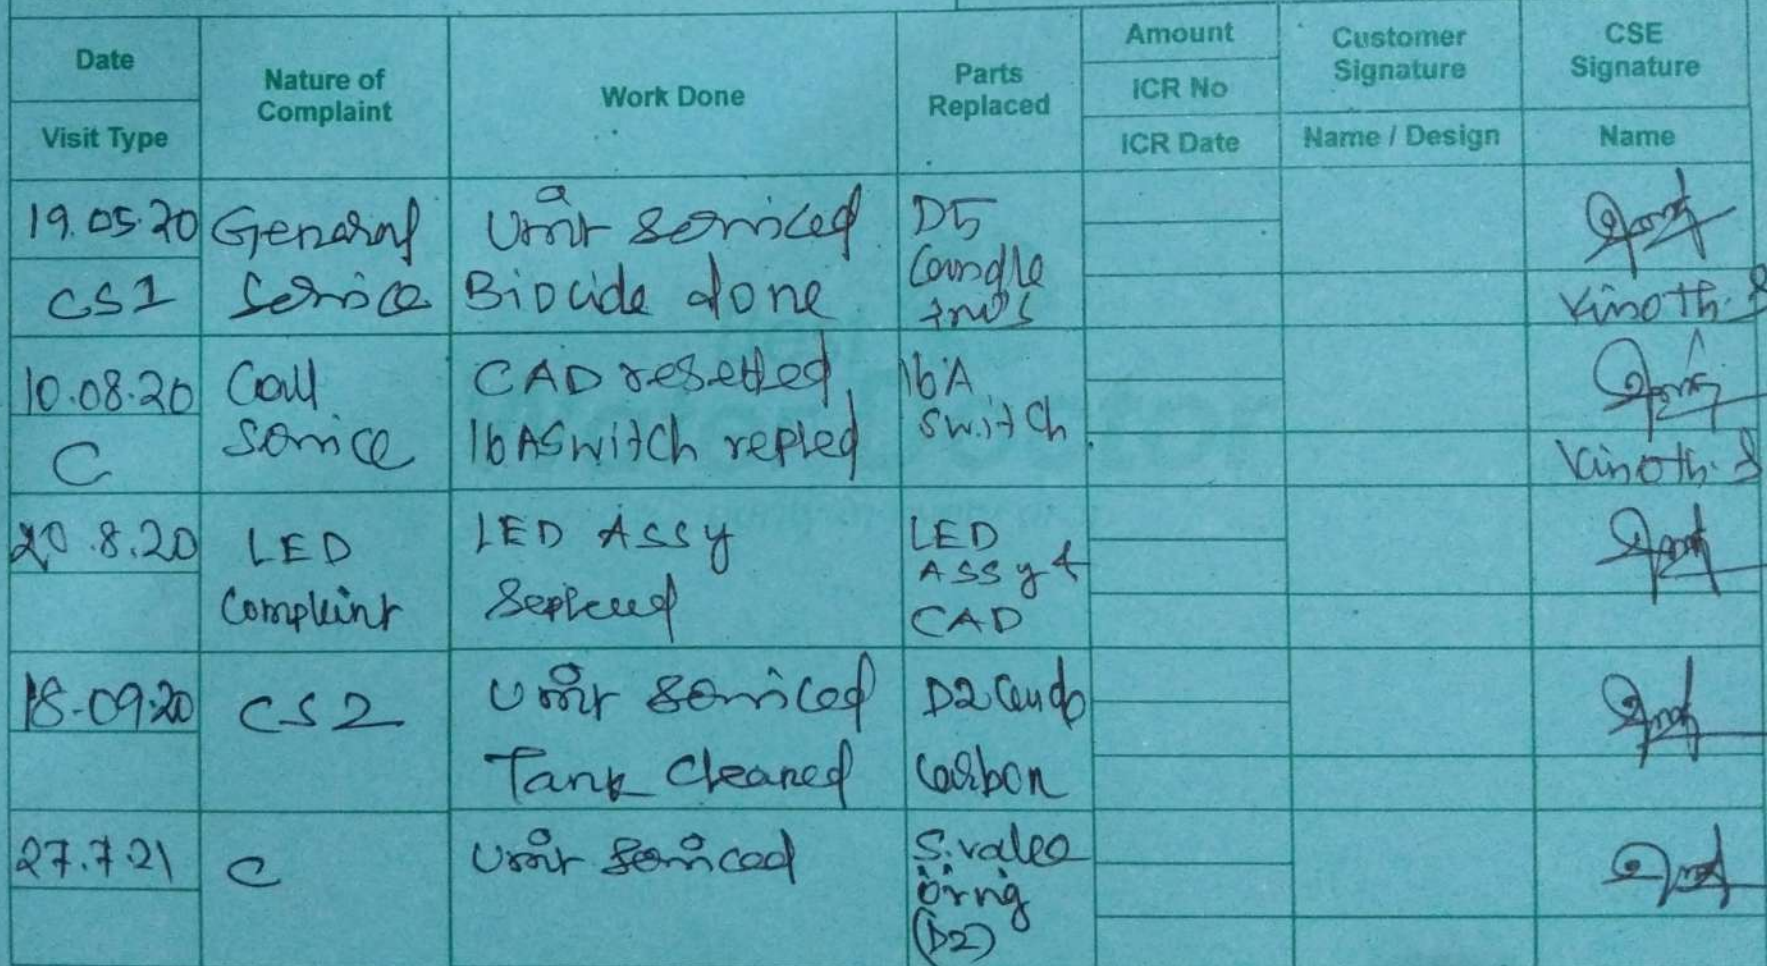 Date
Visit Type
Nature of
Complaint
Work Done
Parts
Replaced
Amount
ICR No
ICR Date
Customer
Signature
Name / Design
CSE
Signature
Name
19.05.20
CS1
General
Service
Unit Serviced
Biocide done
D5
Candle
Vinoth. S
10.08.20
C
Call
Service
CAD resetted,
16A Switch repled
16A
Switch
Vinoth. S
20.8.20
LED
Complaint
LED Assy
LED
Assy &
CAD
18-09-20
CS2
Unit Serviced
Tank Cleaned
D2
Carbon
27.7.21
C
Unit Serviced
S.valve
(D2)